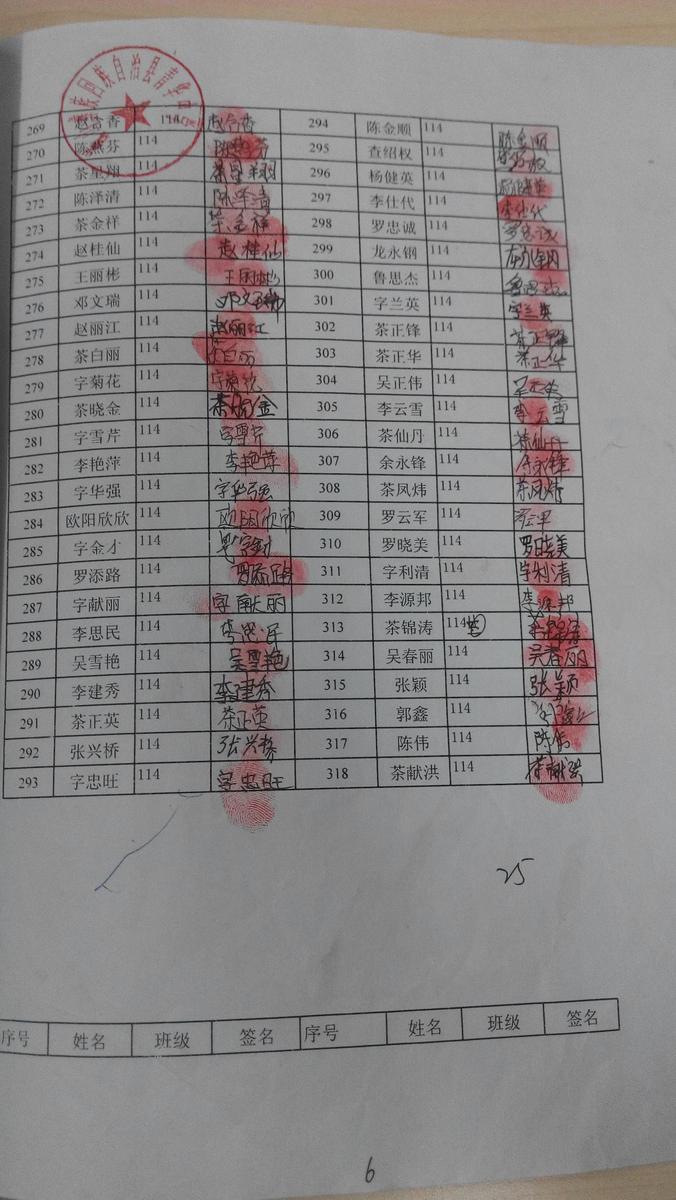 族回族自治县
269 赵合香 114 赵合香 294 陈金顺 114 陈金顺
270 陈燕芬 114 陈燕芬 295 查绍权 114 查绍权
271 茶星翔 114 茶星翔 296 杨健英 114 杨健英
272 陈泽清 114 陈泽清 297 李仕代 114 李仕代
273 茶金祥 114 茶金祥 298 罗忠诚 114 罗忠诚
274 赵桂仙 114 赵桂仙 299 龙永钢 114 龙永钢
275 王丽彬 114 王丽彬 300 鲁思杰 114 鲁思杰
276 邓文瑞 114 邓文瑞 301 字兰英 114 字兰英
277 赵丽江 114 赵丽江 302 茶正锋 114 茶正锋
278 茶白丽 114 茶白丽 303 茶正华 114 茶正华
279 字菊花 114 字菊花 304 吴正伟 114
280 茶晓金 114 茶晓金 305 李云雪 114 李云雪
281 字雪芹 114 字雪芹 306 茶仙丹 114 茶仙丹
282 李艳萍 114 李艳萍 307 余永锋 114 余永锋
283 字华强 114 字华强 308 茶凤炜 114 茶凤炜
284 欧阳欣欣 114 欧阳欣欣 309 罗云军 114
285 字金才 114 310 罗晓美 114 罗晓美
286 罗添路 114 罗添路 311 字利清 114 字利清
287 字献丽 114 字献丽 312 李源邦 114 李源邦
288 李思民 114 李思民 313 茶锦涛 114 茶锦涛
289 吴雪艳 114 吴雪艳 314 吴春丽 114 吴春丽
290 李建秀 114 李建秀 315 张颖 114 张颖
291 茶正英 114 茶正英 316 郭鑫 114
292 张兴桥 114 张兴桥 317 陈伟 114 陈伟
293 字忠旺 114 字忠旺 318 茶献洪 114 茶献洪
25
序号 姓名 班级 签名 序号 姓名 班级 签名
6